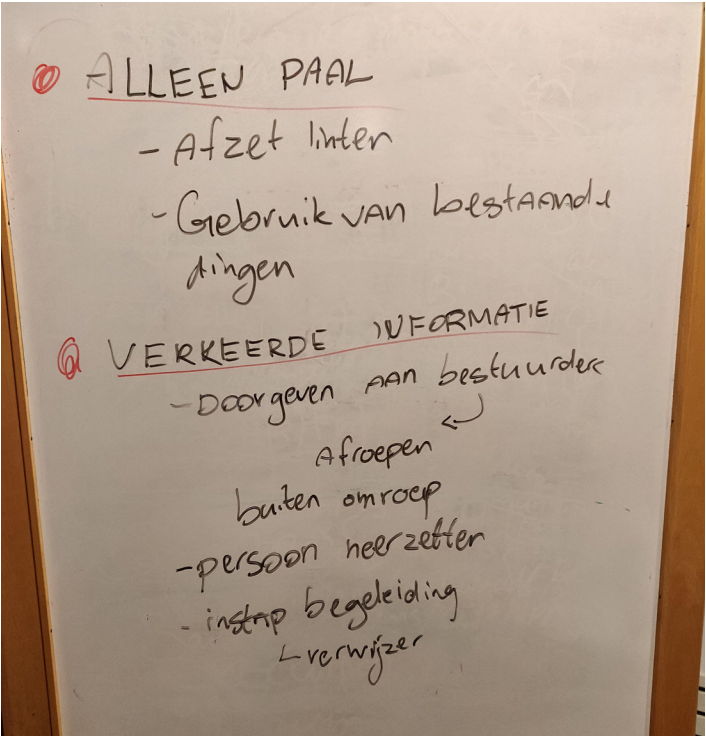 ALLEEN PAAL
- Afzet linten
- Gebruik van bestaande
dingen
VERKEERDE INFORMATIE
- Doorgeven aan bestuurders
Afroepen
buiten omroep
- persoon neerzetten
- instap begeleiding
verwijzer